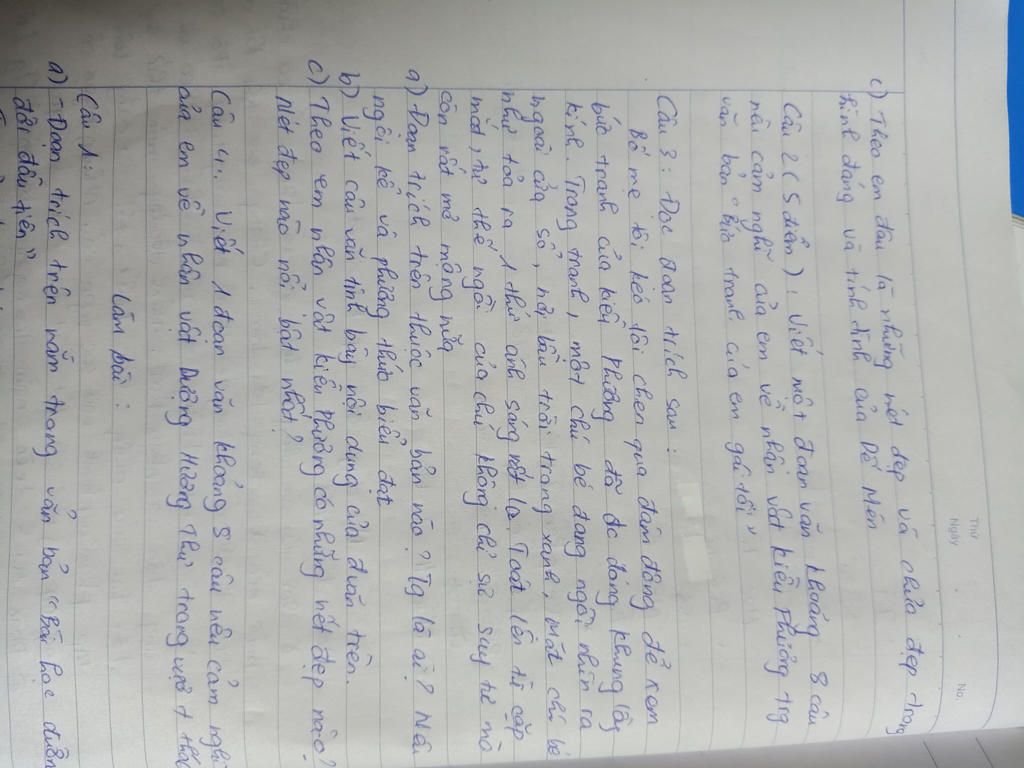 Thứ
Ngày
No.
c) Theo em đâu là những nét đẹp và chưa đẹp trong
hình dáng và tính tình của Dế Mèn
Câu 2 (5 điểm): Viết một đoạn văn khoảng 8 câu
nêu cảm nghĩ của em về nhân vật Kiều Phương trg
văn bản "Bức tranh của em gái tôi"
Câu 3: Đọc đoạn trích sau:
Bố mẹ tôi kéo tôi chen qua đám đông để xem
bức tranh của Kiều Phương đã đc đóng khung lồng
kính. Trong tranh, một chú bé đang ngồi nhìn ra
ngoài cửa sổ, nơi bầu trời trong xanh, mặt chú bé
như tỏa ra 1 thứ ánh sáng rất lạ. Toát lên từ cặp
mắt, tư thế ngồi của chú không chỉ sự suy tư mà
còn rất mơ mộng nữa
a) Đoạn trích trên thuộc văn bản nào? Tg là ai? Nêu
ngôi kể và phương thức biểu đạt
b) Viết câu văn trình bày nội dung của đ.văn trên.
c) Theo em nhân vật Kiều Phương có những nét đẹp nào?
Nét đẹp nào nổi bật nhất?
Câu 4: Viết 1 đoạn văn khoảng 8 câu nêu cảm nghĩ
của em về nhân vật Dượng Hương Thư trong vượt thác
Làm bài:
Câu 1:
a) - Đoạn trích trên nằm trong văn bản "Bài học đường
đời đầu tiên"